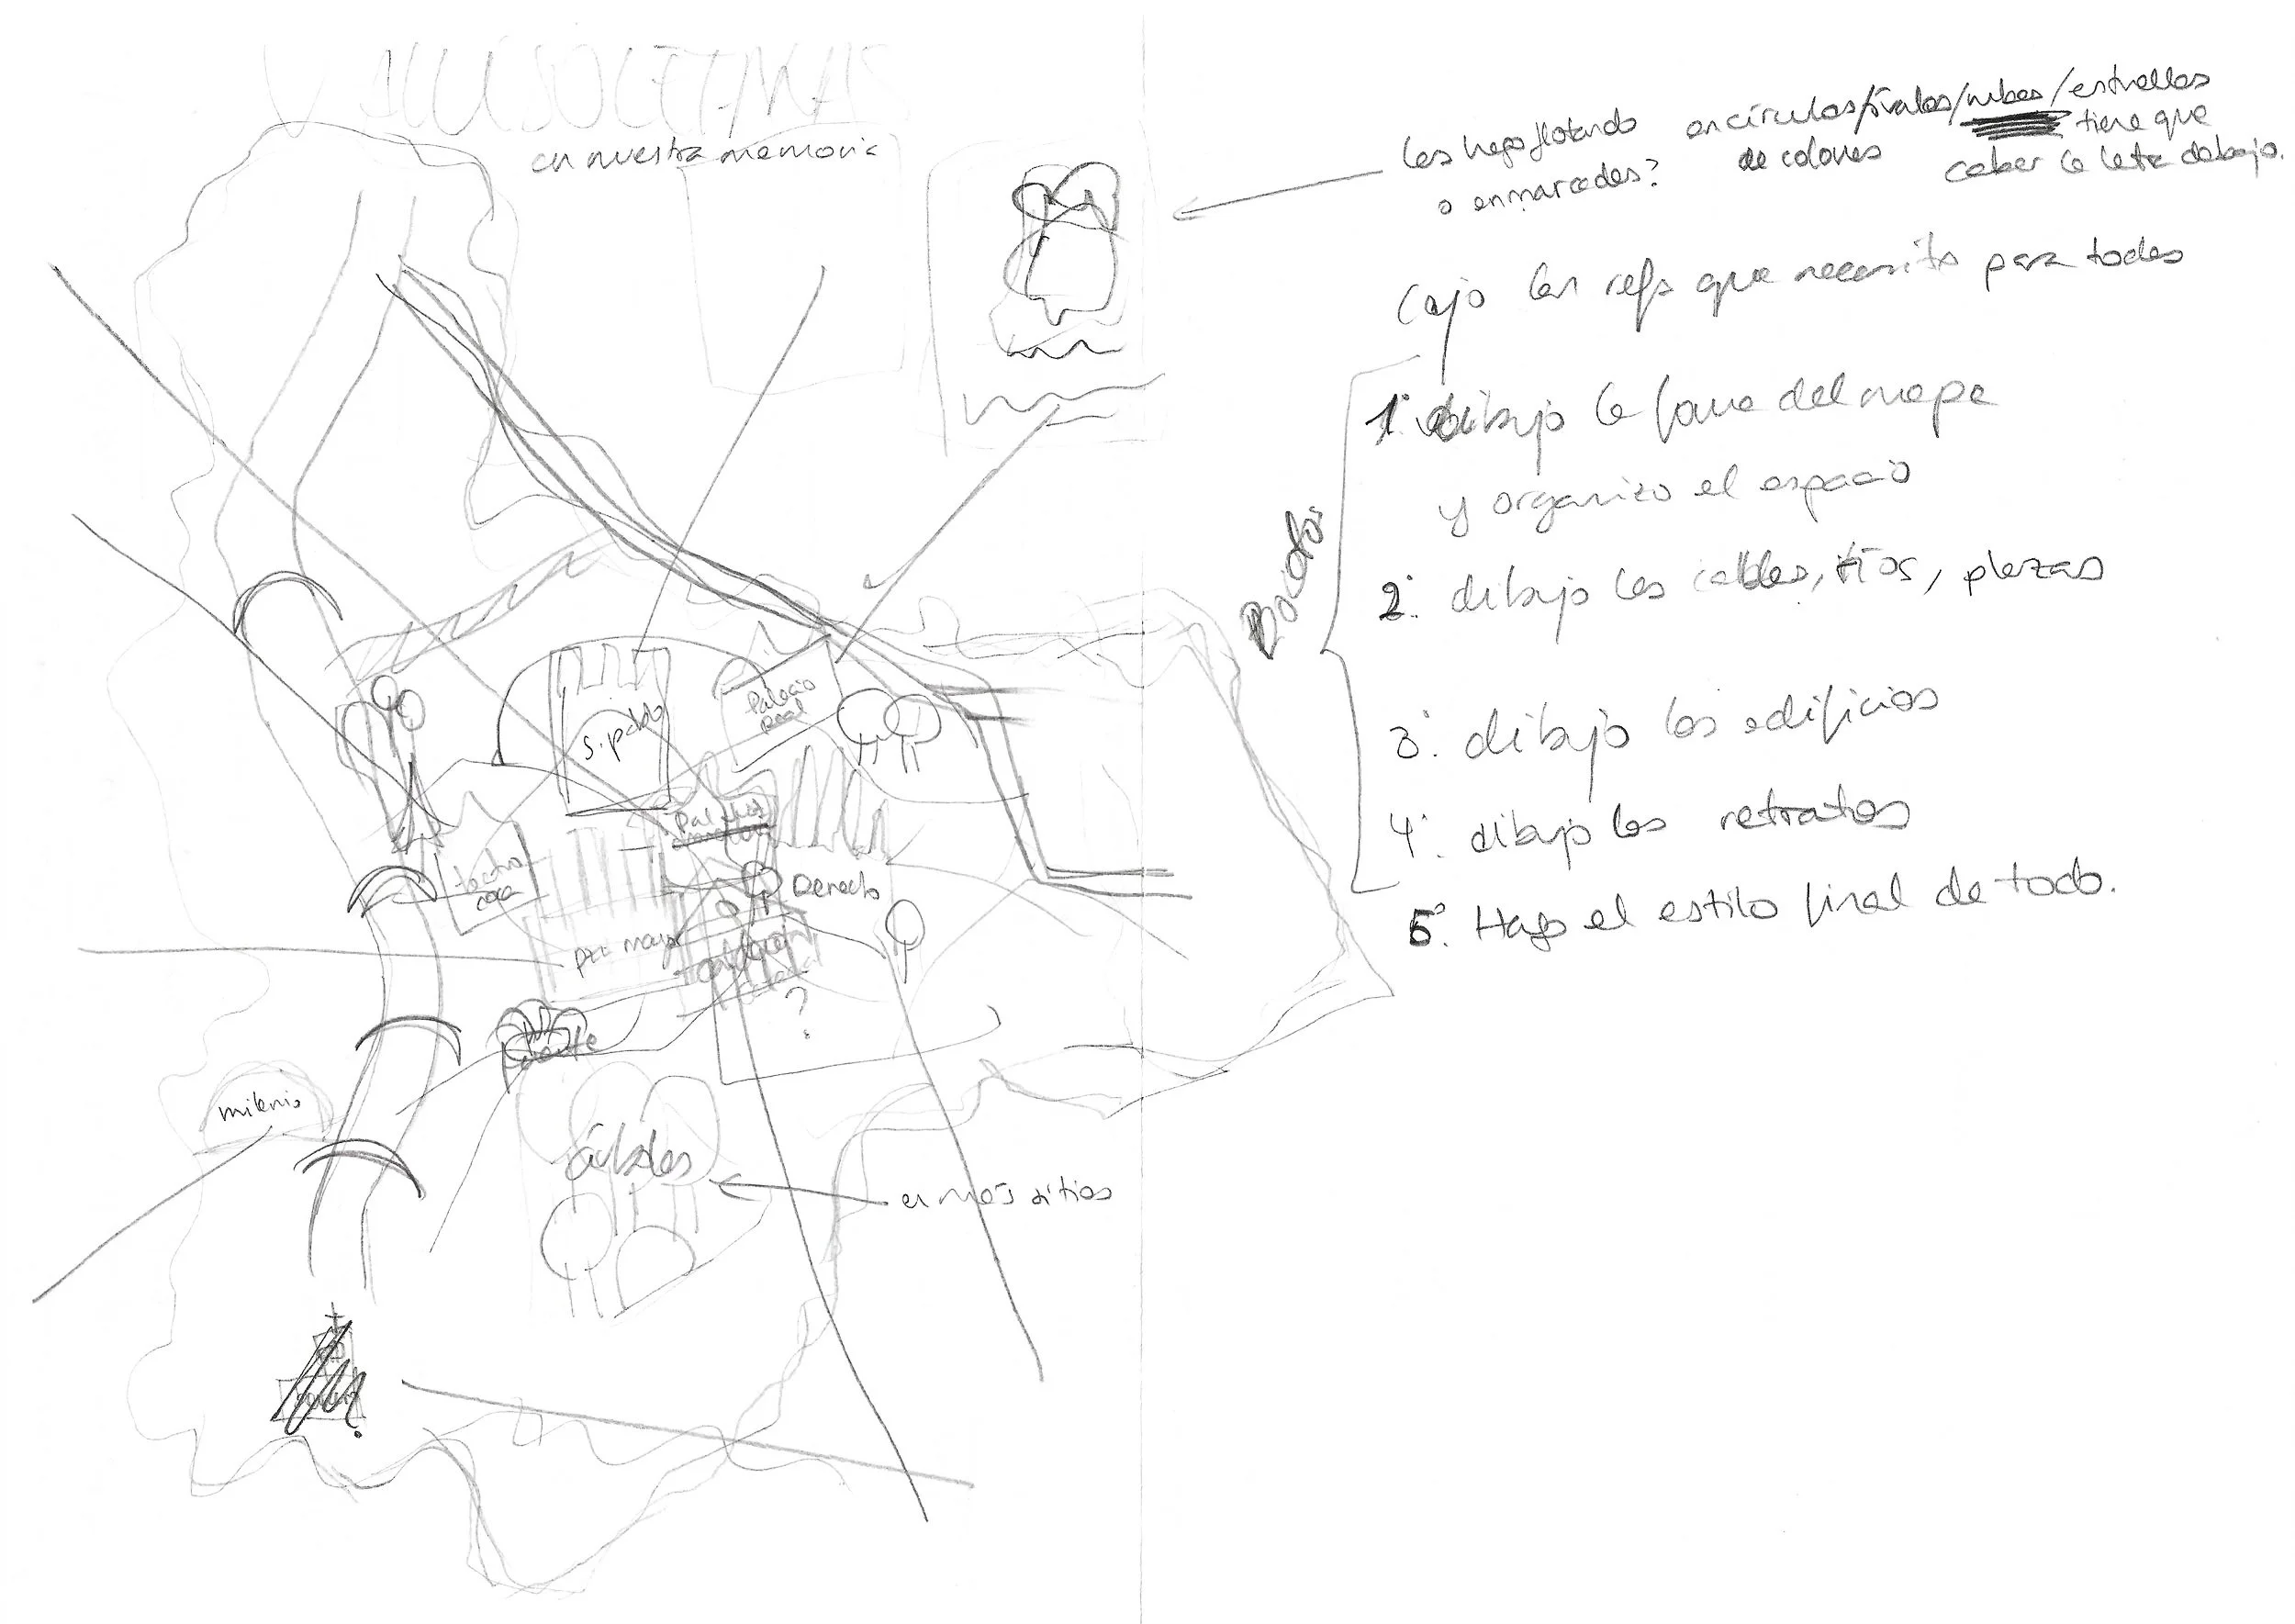 VALLISOLETANAS
en nuestra memoria
las hago flotando
o enmarcadas?
en círculos/óvalos/nubes/estrellas
de colores
tiene que
caber la letra debajo.
Cojo las refs que necesito para todas
Boceto
1º dibujo la forma del mapa
y organizo el espacio
2º dibujo las calles, ríos, plazas
3º dibujo los edificios
4º dibujo los retratos
5º Hago el estilo final de todo.
S. pablo
Palacio
Real
teatro
Derecho
pza mayor
?
fuente
milenio
árboles
en más sitios